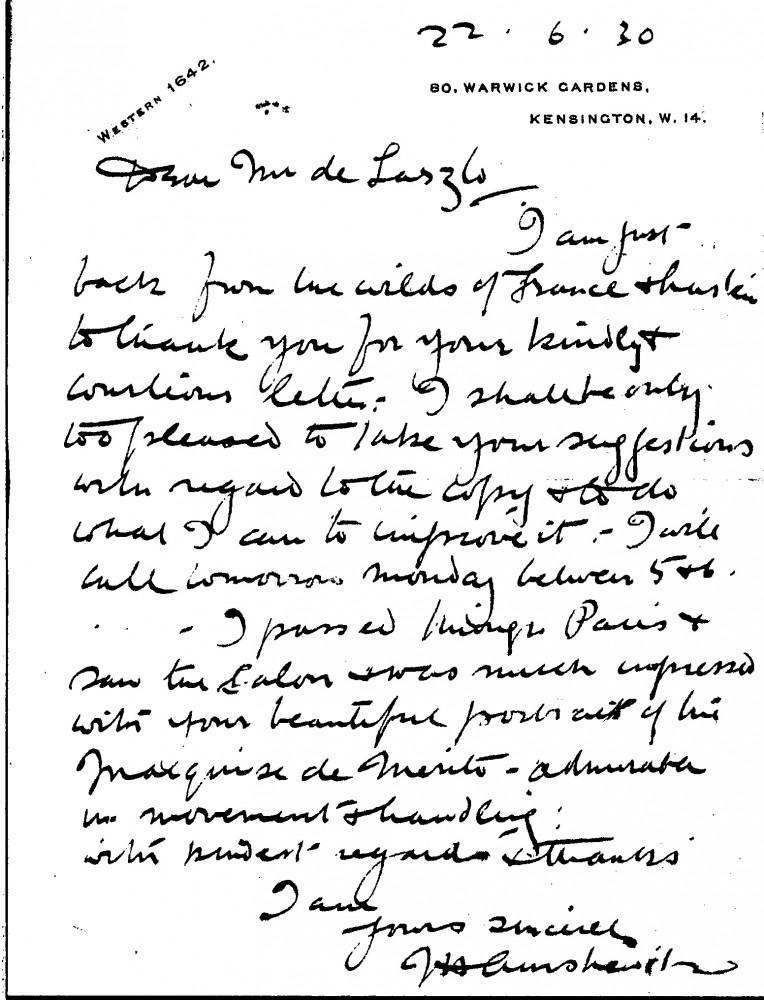 22 . 6 . 30
WESTERN 1642.
80, WARWICK GARDENS,
KENSINGTON, W. 14.
Dear Mr de Laszlo
I am just
back from the wilds of France & hasten
to thank you for your kindly &
courteous letter. I shall be only
too pleased to take your suggestions
with regard to the copy & to do
what I can to improve it. - I will
call tomorrow Monday between 5 & 6.
- I passed through Paris &
saw the Salon & was much impressed
with your beautiful portrait of the
Marquise de Merito - admirable
in movement & handling:
with kindest regards & thanks
I am
yours sincerely